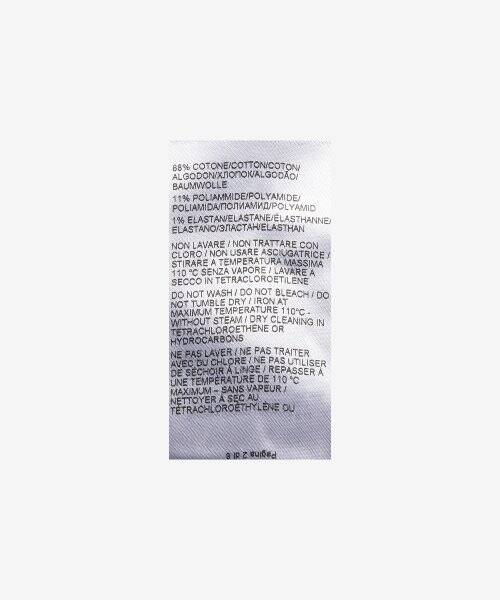 88% COTONE/COTTON/COTON/
ALGODON/ХЛОПОК/ALGODÃO/
BAUMWOLLE
11% POLIAMMIDE/POLYAMIDE/
POLIAMIDA/ПОЛИАМИД/POLYAMID
1% ELASTAN/ELASTANE/ÉLASTHANNE/
ELASTANO/ЭЛАСТАН/ELASTHAN
NON LAVARE / NON TRATTARE CON
CLORO / NON USARE ASCIUGATRICE /
STIRARE A TEMPERATURA MASSIMA
110 °C SENZA VAPORE / LAVARE A
SECCO IN TETRACLOROETILENE
DO NOT WASH / DO NOT BLEACH / DO
NOT TUMBLE DRY / IRON AT
MAXIMUM TEMPERATURE 110°C -
WITHOUT STEAM / DRY CLEANING IN
TETRACHLOROETHENE OR
HYDROCARBONS
NE PAS LAVER / NE PAS TRAITER
AVEC DU CHLORE / NE PAS UTILISER
DE SÉCHOIR À LINGE / REPASSER À
UNE TEMPÉRATURE DE 110 °C
MAXIMUM – SANS VAPEUR /
NETTOYER À SEC AU
TÉTRACHLOROÉTHYLÈNE OU
Pagina 2 di 8